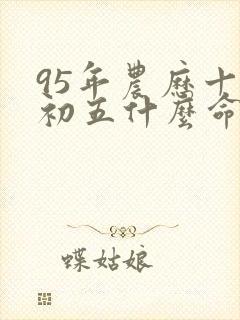 95年農歷十
初五什麼命
蝶姑娘